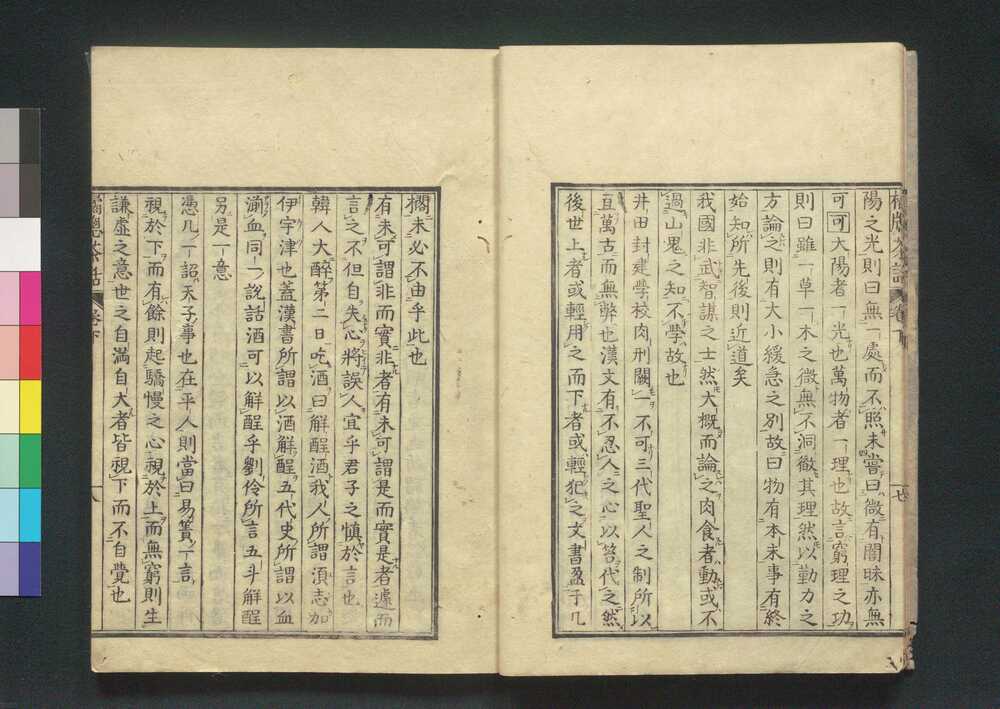 陽之光則曰無一處而不照未嘗曰微有闇昧亦無
可可大陽者一光也萬物者一理也故言窮理之功
則曰雖一草一木之微無不洞徹其理然以勤力之
方論之則有大小緩急之別故曰物有本末事有終
始知所先後則近道矣
我國非武智謀之士然大概而論之肉食者動或不
過山鬼之知不學故也
井田封建學校肉刑闕一不可三代聖人之制所以
亘萬古而無弊也漢文有不忍人之心以笞代之然
後世上者或輕用之而下者或輕犯之文書盈于几
閣未必不由乎此也
有未可謂非而實非者有未可謂是而實是者遽而
言之不但自失心將誤人宜乎君子之愼於言也
韓人大醉第二日吃酒曰解酲酒我人所謂湏志加
伊宇津也蓋漢書所謂以酒解酲五代史所謂以血
湔血同一說話酒可以解酲乎劉伶所言五斗解酲
另是一意
憑几一詔天子事也在平人則當曰易簀一言
視於下而有餘則起驕慢之心視於上而無窮則生
謙虛之意世之自滿自大者皆視下而不自覺也
橘牕茶話 卷下